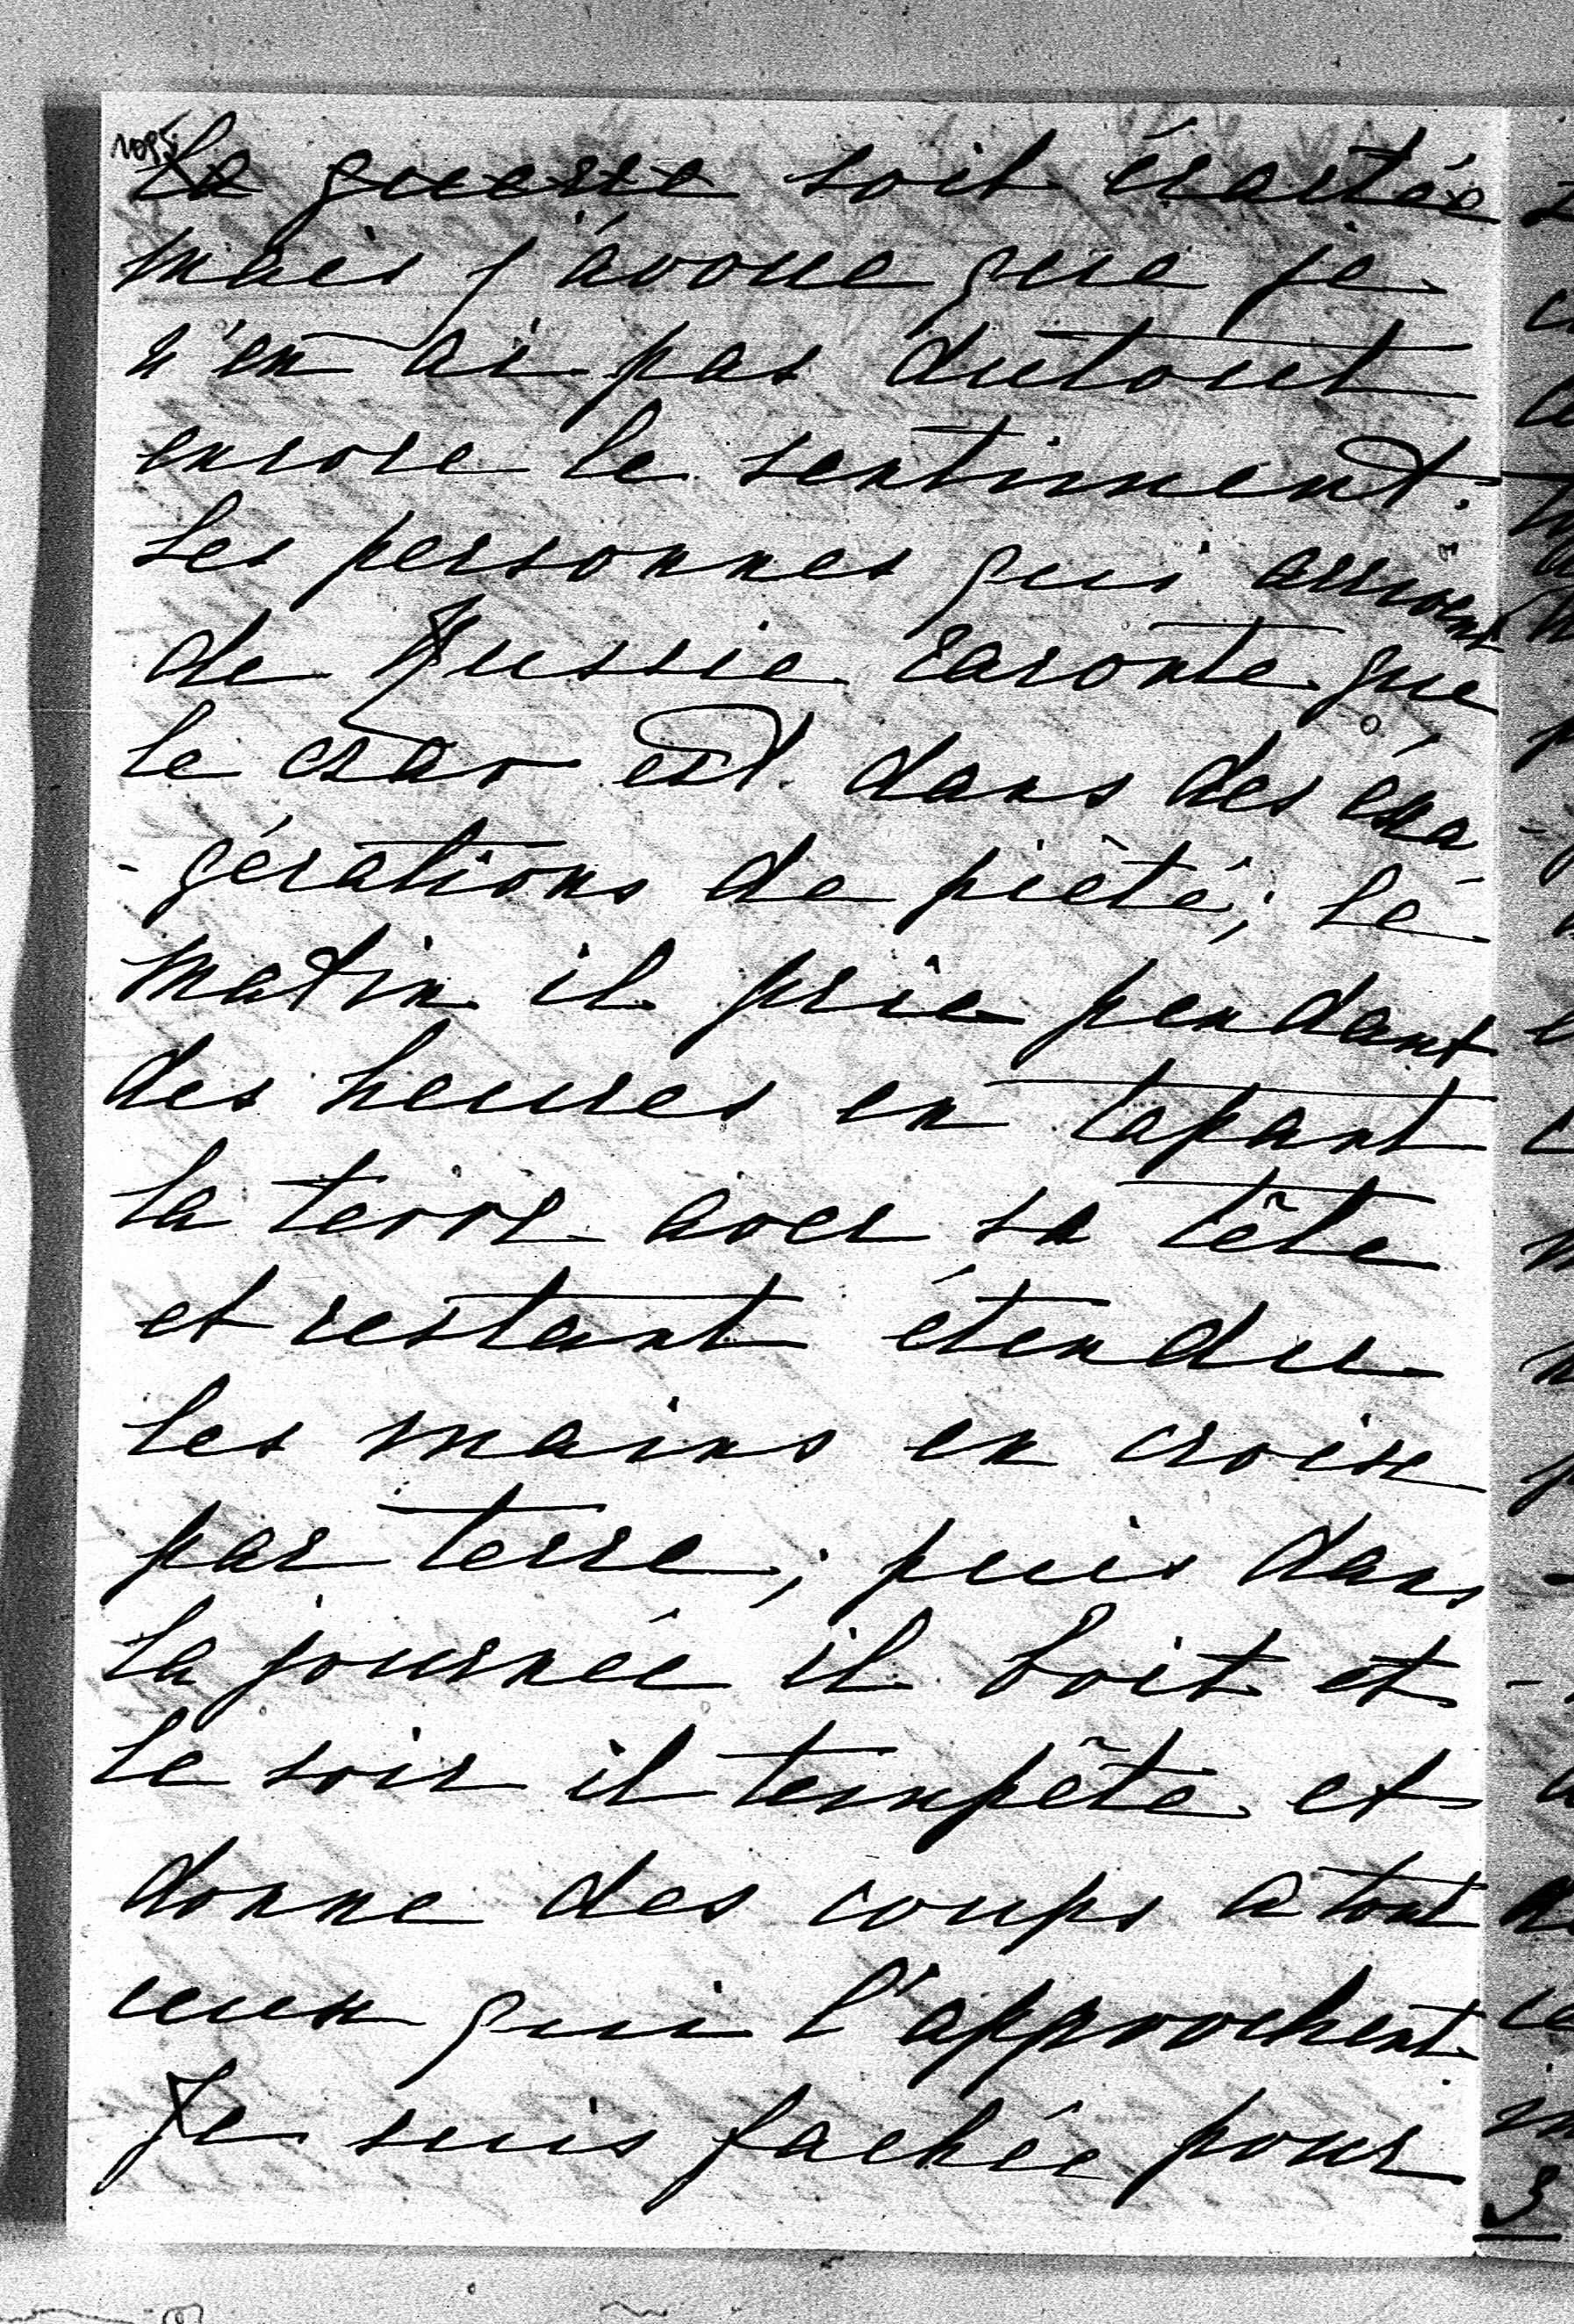 1095
la guerre soit écartée
mais j'avoue que je
n'en ai pas dutout
encore le sentiment.
Les personnes qui arrivent
de Russie raconte que
le czar est dans des éxa
-gérations de piété; le
matin il prie pendant
des heures en tapant
la terre avec sa tête
et restant étendu
les mains en croix
par terre; puis dans
la journée il boit et
le soir il tempête et
donne des coups a tout
ceux qui l'approchent.
Je suis fachée pour
3